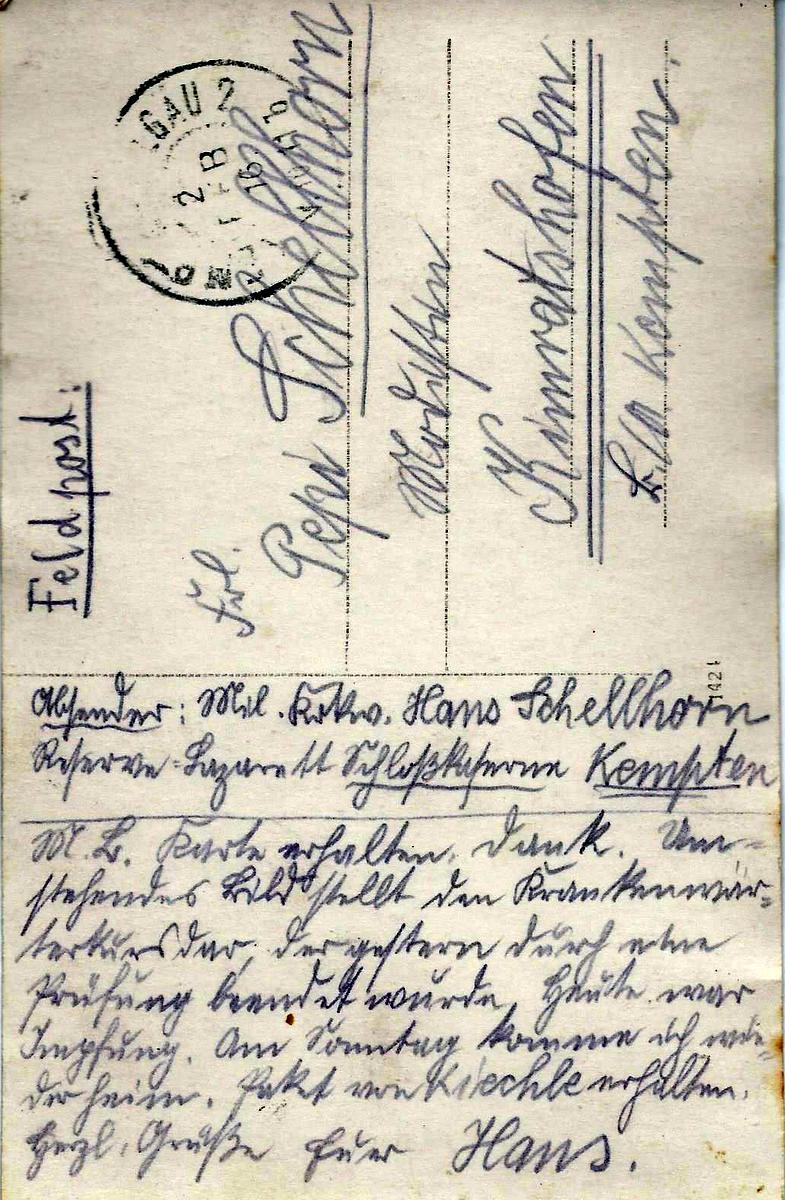 Feldpost.
GAU 2
2
FEB
16
Frl.
Pepi Schellhorn
Modistin
Kimratshofen
b/a Kempten.
1421
Absender: Mil. Krkw. Hans Schellhorn
Reserve-Lazarett Schloßkaserne Kempten
M. L. Karte erhalten. Dank. Um-
stehendes Bild stellt den Krankenwär-
terkurs dar, der gestern durch eine
Prüfung beendet wurde. Heute war
Impfung. Am Sonntag komme ich wie-
der heim. Paket von Kiechle erhalten.
Herzl. Grüße Euer Hans.